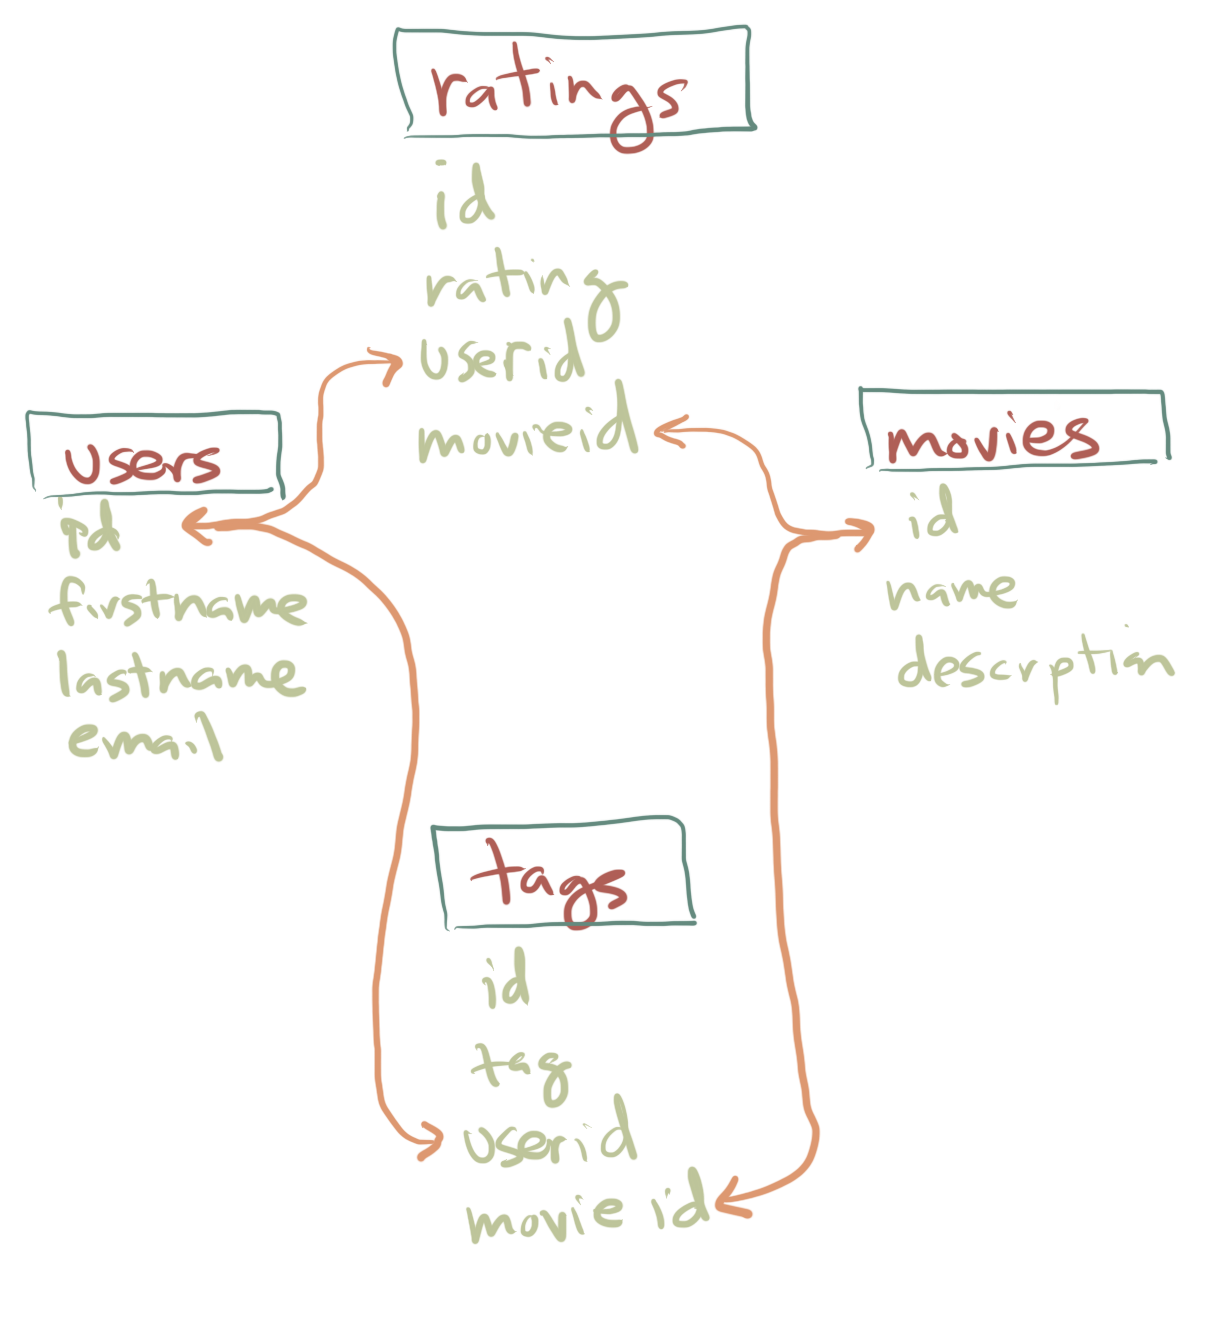 ratings
id
rating
userid
movieid
users
id
firstname
lastname
email
movies
id
name
descrption
tags
id
tag
userid
movie id